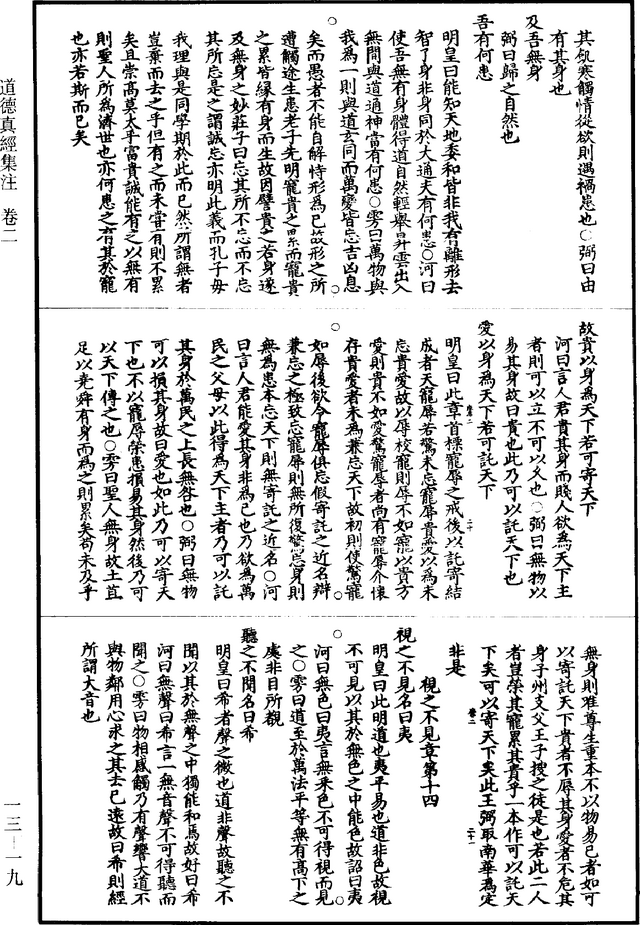 其飢寒觸情從欲則遇禍患也○弼曰由
有其身也
及吾無身
弼曰歸之自然也
吾有何患
明皇曰能知天地委和皆非我有離形去
智了身非身同於大通夫有何患○河曰
使吾無有身體得道自然輕舉昇雲出入
無間與道通神當有何患○雱曰萬物與
我為一則與道玄同而萬變皆忘吉凶息
矣而愚者不能自解恃形為己故形之所
遭觸途生患老子先明寵貴之累而寵貴
之累皆緣有身而生故因譬貴之若身遂
及無身之妙莊子曰忘其所不忘而不忘
其所忘是之謂誠忘亦明此義而孔子毋
我理與是同學期於此而已然所謂無者
豈棄而去之乎但有之而未嘗有則不累
矣且崇高莫大乎富貴誠能有之以無有
則聖人所為濟世也亦何患之有其於寵
也亦若斯而已矣
故貴以身為天下若可寄天下
河曰言人君貴其身而賤人欲為天下主
者則可以立不可以久也○弼曰無物以
易其身故曰貴也此乃可以託天下也
愛以身為天下若可託天下
明皇曰此章首標寵辱之戒後以託寄結
成者夫寵辱若驚未忘寵辱貴愛以為未
忘貴愛故以辱校寵則辱不如寵以貴方
愛則貴不如愛驚寵辱者尚有寵辱介懷
存貴愛者未為兼忘天下故初則使驚寵
如辱後欲令寵辱俱忘假寄託之近名辯
兼忘之極致忘寵辱則無所復驚忘身則
無為患本忘天下則無寄託之近名○河
曰言人君能愛其身非為己也乃欲為萬
民之父母以此得為天下主者乃可以託
其身於萬民之上長無咎也○弼曰無物
可以損其身故曰愛也如此乃可以寄天
下也不以寵辱榮患損易其身然後乃可
以天下傳之也○雱曰聖人無身故土苴
足以堯舜有身而為之則累矣苟未及乎
無身則唯尊生重本不以物易己者如可
以寄託天下貴者不辱其身愛者不危其
身子州支父王子搜之徒是也若此二人
者豈榮其寵累其貴乎一本作可以託天
下矣可以寄天下矣此王弼取南華為定
非是
視之不見章第十四
視之不見名曰夷
明皇曰此明道也夷平易也道非色故視
不可見以其於無色之中能色故詔曰夷
河曰無色曰夷言無采色不可得視而見
之○雱曰道至於萬法平等無有高下之
處非目所覩
聽之不聞名曰希
明皇曰希者聲之微也道非聲故聽之不
聞以其於無聲之中獨能和焉故好曰希
河曰無聲曰希言一無音聲不可得聽而
聞之○雱曰物相感觸乃有聲響大道不
與物鄰用心求之其去已遠故曰希則經
所謂大音也
道德真經集注 卷二
一三—一九